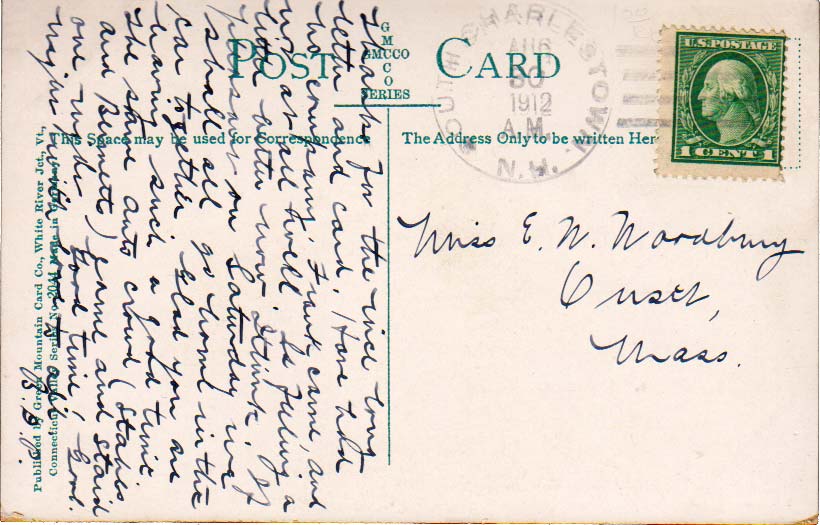 POST CARD
G
M
GMCCO
C
O
SERIES
SOUTH CHARLESTOWN
AUG
30
1912
A.M.
N.H.
U.S. POSTAGE
1 CENT 1
This Space may be used for Correspondence
The Address Only to be written Here
Miss E. W. Woodbury
Onset,
Mass.
Thanks for the nice long
letter and card. Have had
no company, Frank came, and
was not at all well. Is feeling a
little better now. I think if
pleasant on Saturday we
shall all go home in the
car together. Glad you are
having such a good time.
The same auto crowd (Stables
and Bennett) came and staid
one night. Good time, Good
night with love to all.
B. B.
Published by Green Mountain Card Co., White River Jct., Vt.,
Connecticut Valley Series No. 2041 Made in Germany